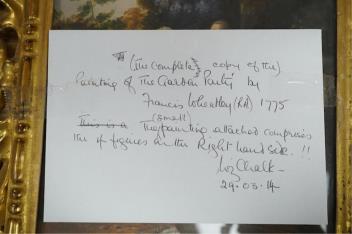 (The complete copy of the)
Painting of 'The Garden Party' by
Francis Wheatley (RA) 1775
(small)
This is a The painting attached comprises
the figures in the Right hand side. !!
Liz Chalk
29.03.14